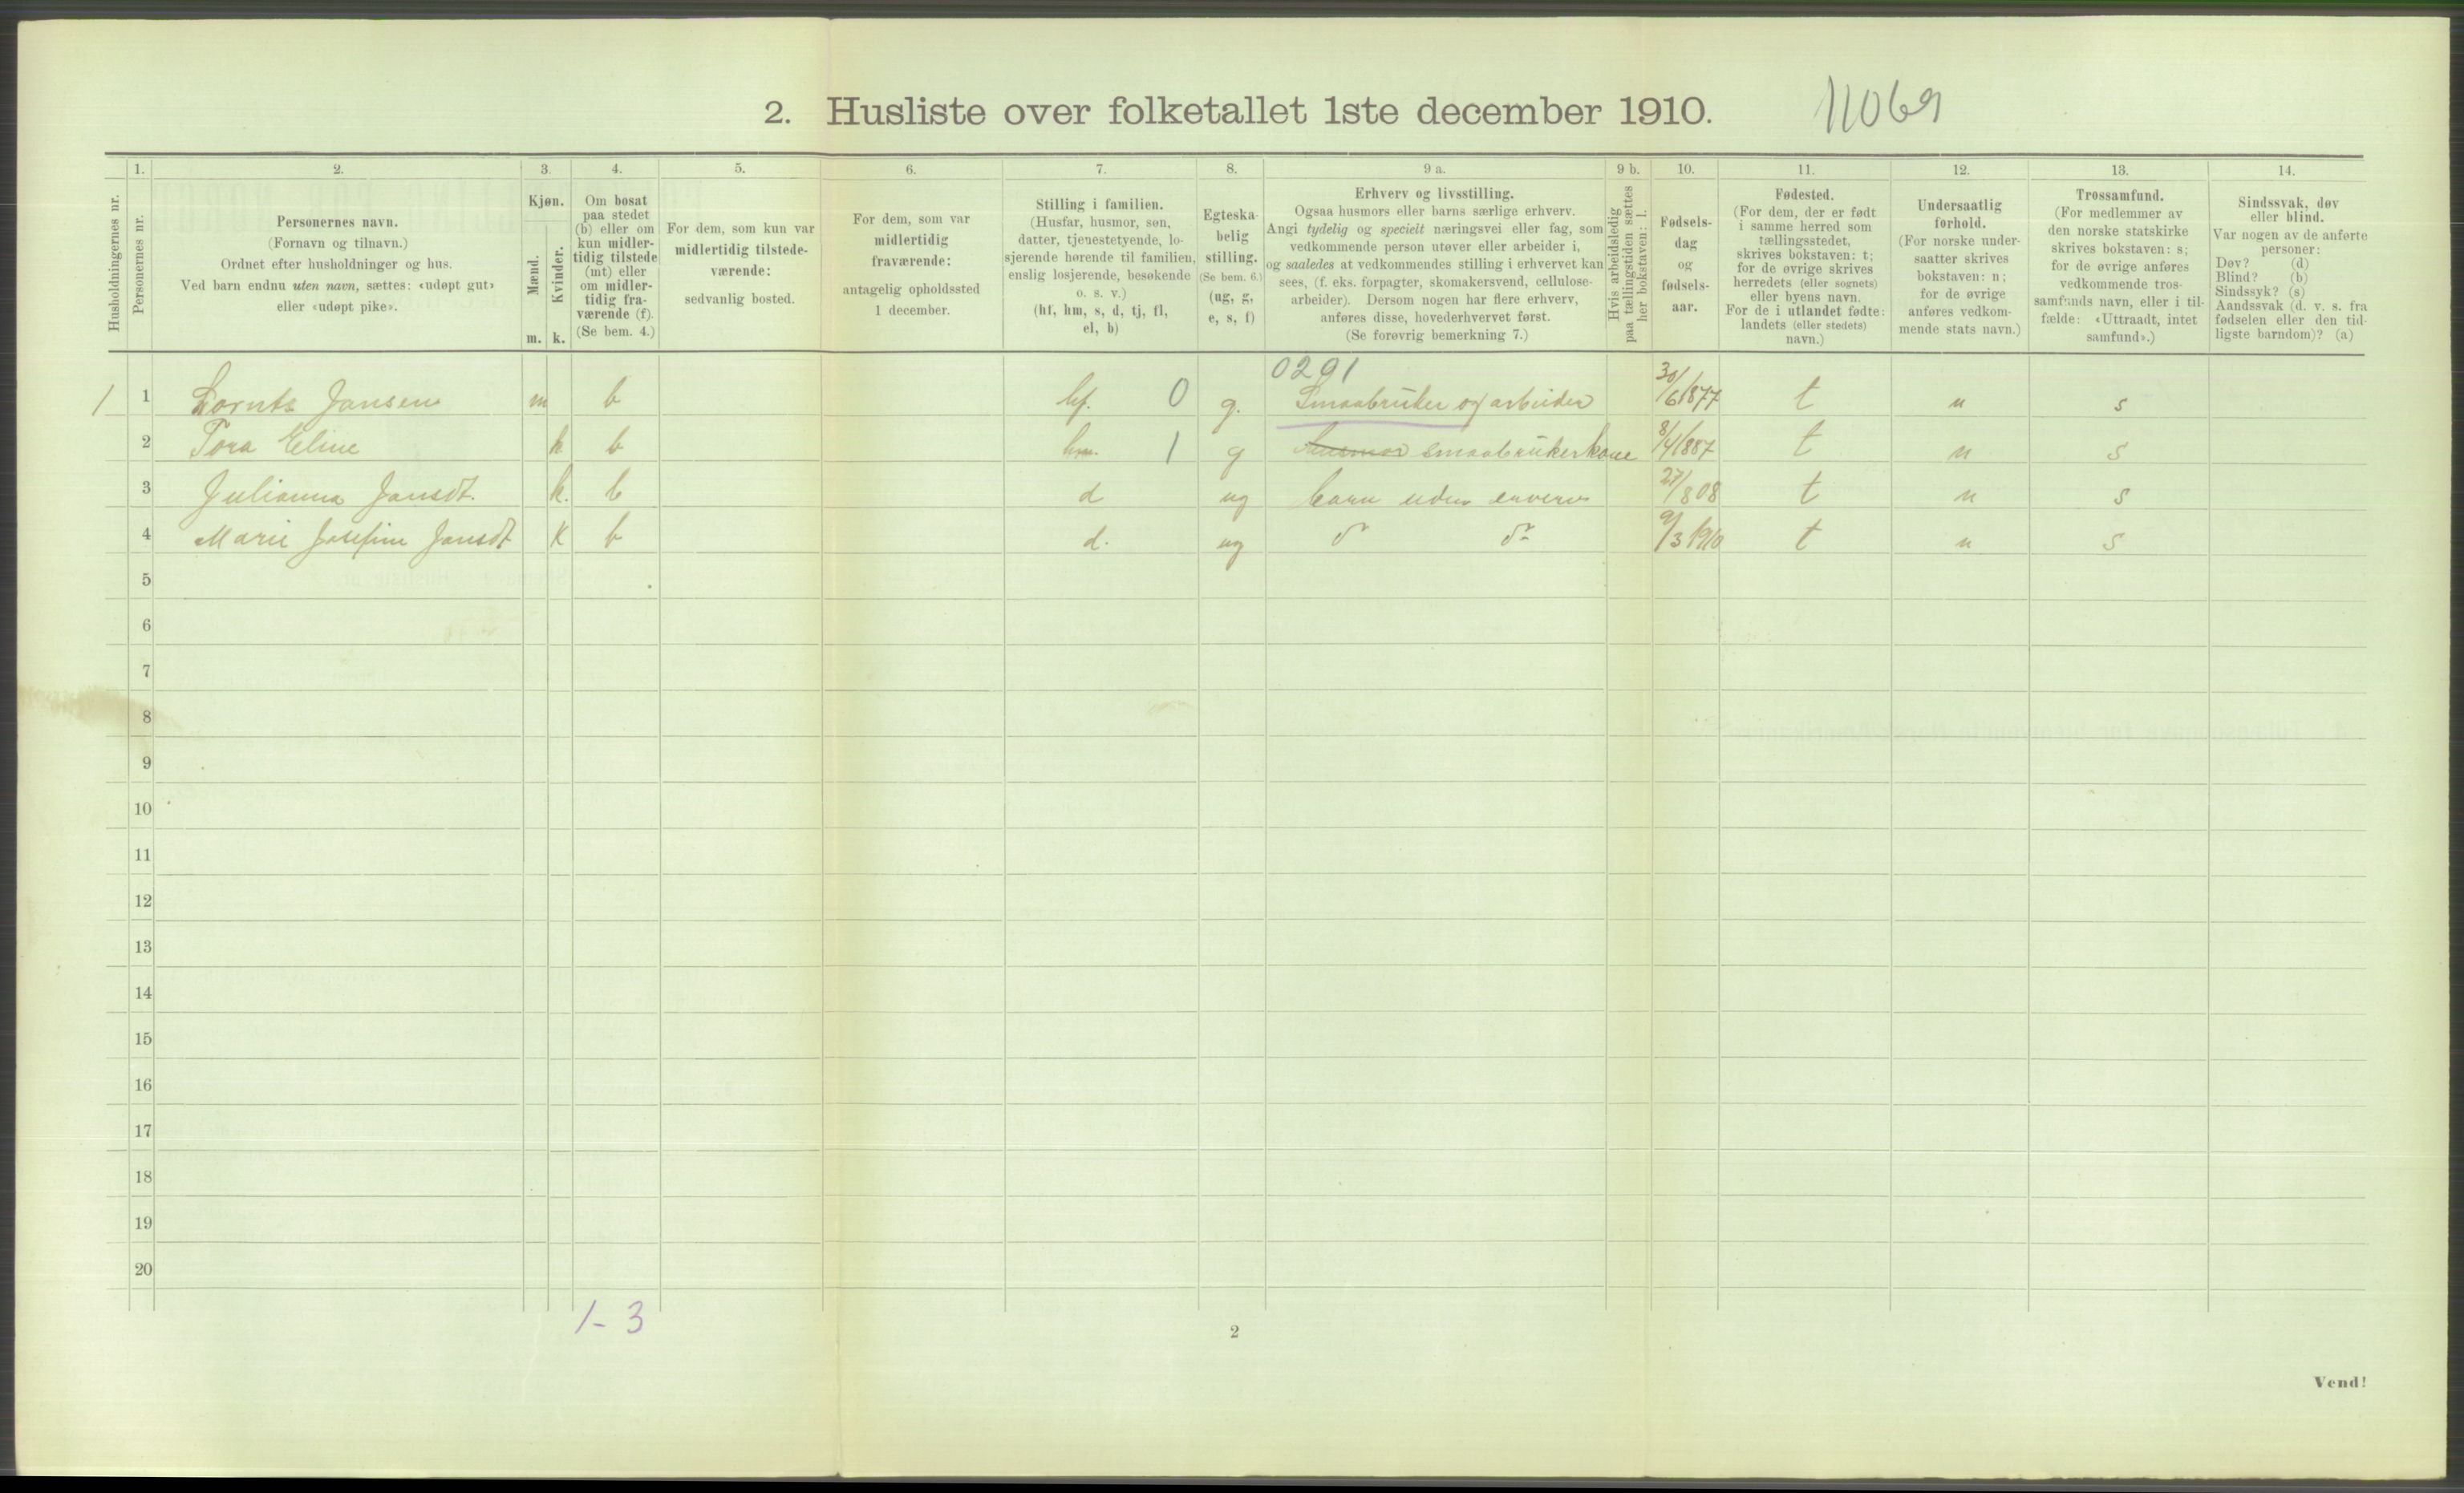 2. Husliste over folketallet 1ste december 1910. 11069
Husholdningernes nr.
1.
Personernes nr.
2.
Personernes navn.
(Fornavn og tilnavn.)
Ordnet efter husholdninger og hus.
Ved barn endnu uten navn, sættes: «udøpt gut»
eller «udøpt pike».
3.
Kjøn.
Mænd.
Kvinder.
m. k.
4.
Om bosat
paa stedet
(b) eller om
kun midler-
tidig tilstede
(mt) eller
om midler-
tidig fra-
værende (f).
(Se bem. 4.)
5.
For dem, som kun var
midlertidig tilstede-
værende:
sedvanlig bosted.
6.
For dem, som var
midlertidig
fraværende:
antagelig opholdssted
1 december.
7.
Stilling i familien.
(Husfar, husmor, søn,
datter, tjenestetyende, lo-
sjerende hørende til familien,
enslig losjerende, besøkende
o. s. v.)
(hf, hm, s, d, tj, fl,
el, b)
8.
Egteska-
belig
stilling.
(Se bem. 6.)
(ug, g,
e, s, f)
9 a.
Erhverv og livsstilling.
Ogsaa husmors eller barns særlige erhverv.
Angi tydelig og specielt næringsvei eller fag, som
vedkommende person utøver eller arbeider i,
og saaledes at vedkommendes stilling i erhvervet kan
sees, (f. eks. forpagter, skomakersvend, cellulose-
arbeider). Dersom nogen har flere erhverv,
anføres disse, hovederhvervet først.
(Se forøvrig bemerkning 7.)
9 b.
Hvis arbeidsledig
paa tællingstiden sættes
her bokstaven: l.
10.
Fødsels-
dag
og
fødsels-
aar.
11.
Fødested.
(For dem, der er født
i samme herred som
tællingsstedet,
skrives bokstaven: t;
for de øvrige skrives
herredets (eller sognets)
eller byens navn.
For de i utlandet fødte:
landets (eller stedets)
navn.)
12.
Undersaatlig
forhold.
(For norske under-
saatter skrives
bokstaven: n;
for de øvrige
anføres vedkom-
mende stats navn.)
13.
Trossamfund.
(For medlemmer av
den norske statskirke
skrives bokstaven: s;
for de øvrige anføres
vedkommende tros-
samfunds navn, eller i til-
fælde: «Uttraadt, intet
samfund».)
14.
Sindssvak, døv
eller blind.
Var nogen av de anførte
personer:
Døv? (d)
Blind? (b)
Sindssyk? (s)
Aandssvak (d. v. s. fra
fødselen eller den tid-
ligste barndom)? (a)
0291
1 1 Lornts Jansen m b hf. 0 g. Smaabruker og arbeider 30/6 1877 t n s
2 Tora Eline k b hm. 1 g husmor smaabrukerkone 8/4 1887 t n s
3 Julianna Jansdt. k. b d ug barn uden erverv 27/8 08 t n s
4 Marie Josefine Jansdt k b d. ug do do 9/3 1910 t n s
5
6
7
8
9
10
11
12
13
14
15
16
17
18
19
20
1-3
2
Vend!